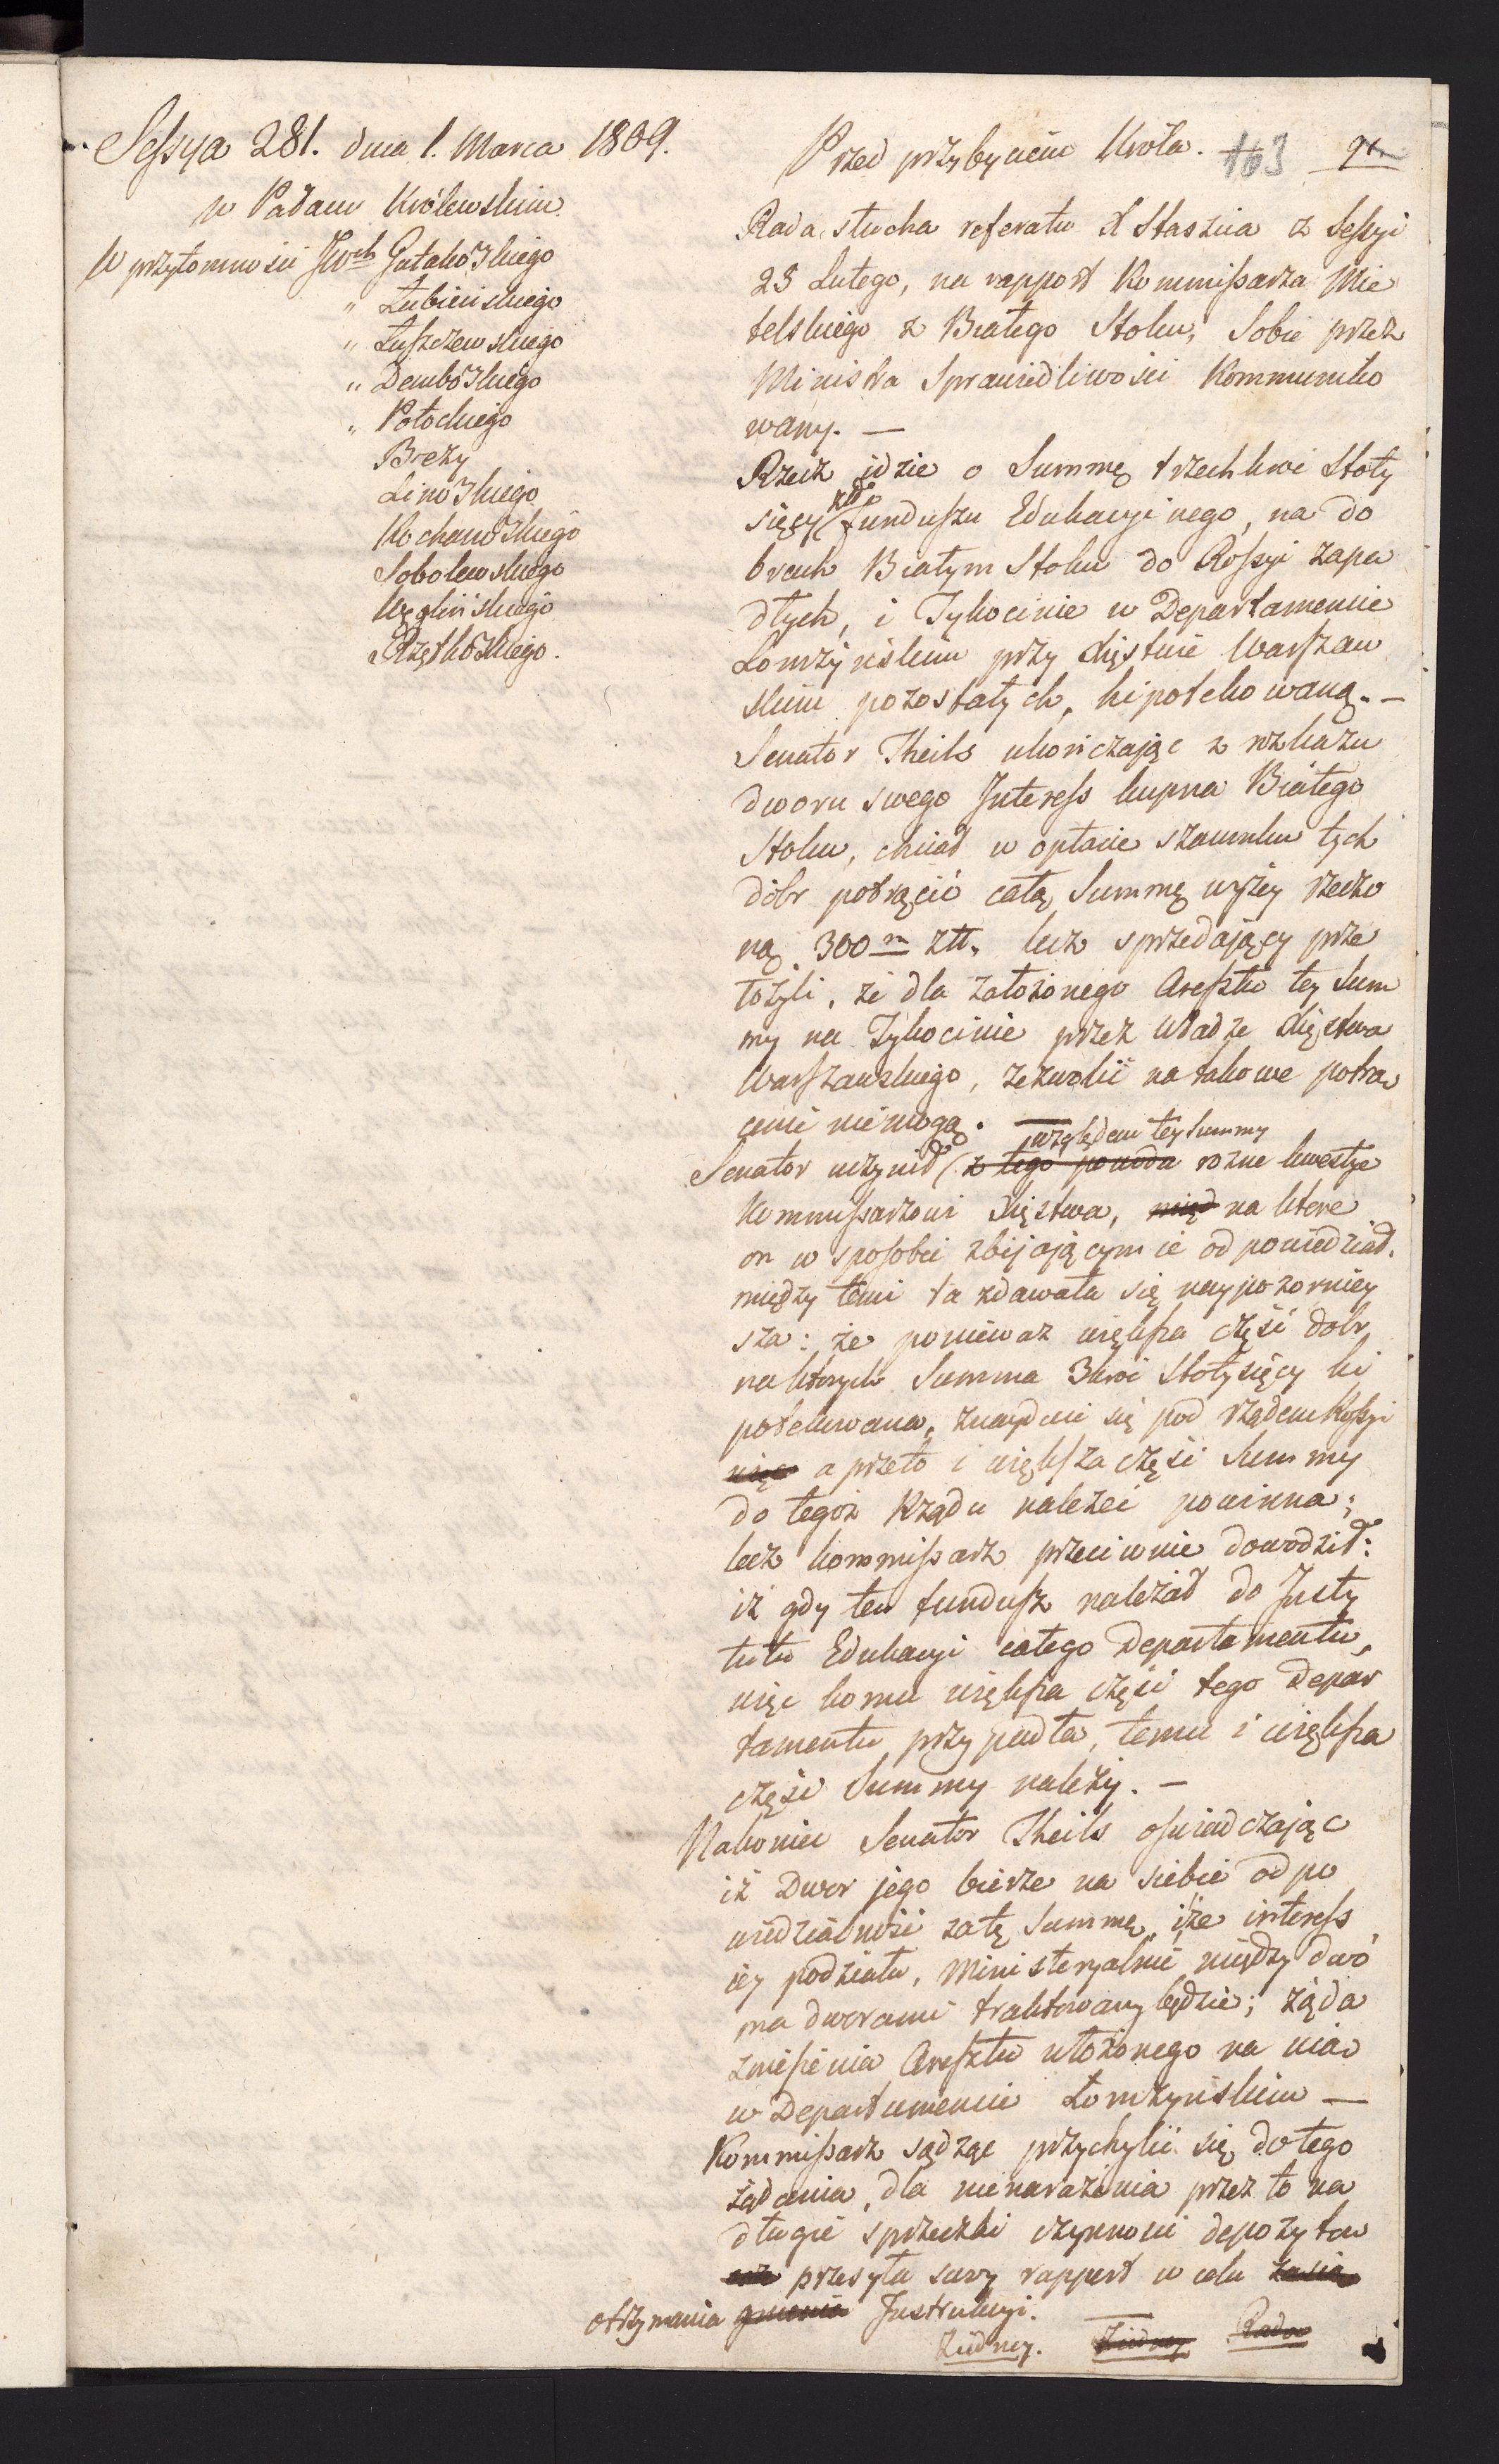 Sessya 281. dnia 1. Marca 1809.
w Pałacu Królewskim
W przytomności JWch Gutakowskiego
" Łubieńskiego
" Łuszczewskiego
" Dembowskiego
" Potockiego
Brezy
Linowskiego
Kochanowskiego
Sobolewskiego
Węglińskiego
Rzętkowskiego.
Przed przybyciem Króla. 103 91.
Rada słucha referatu X Staszica z Sessyi
28 Lutego, na rapport Kommissarza Mie
telskiego z Białego Stoku, Sobie przez
Ministra Sprawiedliwości Kommuniko
wany. —
Rzecz jdzie o Summę trzechkroć Stoty
sięcy złp funduszu Edukacyinego, na do
brach Białym Stoku do Rossyi zapa
dłych, i Tykocinie w Departamencie
Łomżyńskim przy Xięstwie Warszaw
skim pozostałych, hipotekowaną. —
Senator Theils ukończając z rozkazu
dworu swego Jnteress kupna Białego
Stoku, chciał w opłacie szacunku tych
dóbr potrącić całą Summę wyżey rzeczo
ną 300m złł. lecz sprzedający prze
łożyli, że dla założonego Aresztu tey Sum
my na Tykocinie przez Władze Xięstwa
Warszawskiego, zezwolić na takowe potrą
cenie niemogą. —
względem tey Summy
Senator uczynił z tego powodu rozne kwestye
Kommissarzowi Xięstwa, międ na ktore
on w sposobie zbijającym ie odpowiedział.
między temi ta zdawała się naypozorniey
sza: że ponieważ większa część dobr
na ktorych Summa 3kroć Stotysięcy hi
potekowana, znayduie się pod rządem Rossyi
więc a przeto i większa część Summy
do tegoż Rządu należeć powinna;
lecz kommissarz przeciwnie dowodził:
iż gdy ten fundusz należał do Justy
tutu Edukacyi całego Departamentu,
więc komu większa część tego Depar
tamentu przypadła, temu i większa
część Summy należy. —
Nakoniec Senator Theils oswiadczając
iż Dwor jego bierze na siebie odpo
wiedzialność zatę Summę, iże interess
iey podziału, Ministeryalnie między dwó
ma dworami traktowany będzie; żąda
zniesienia Aresztu włożonego na nią
w Departamencie Łomżyńskim —
Kommissarz sądząc przychylić się do tego
żądania, dla nienarażenia przez to na
długie sprzeczki czynności depozytow
przesyła swoy rapport w celu zasią
otrzymania gnienia Jnstrukcyi. —
Żadney. Żadney Rada